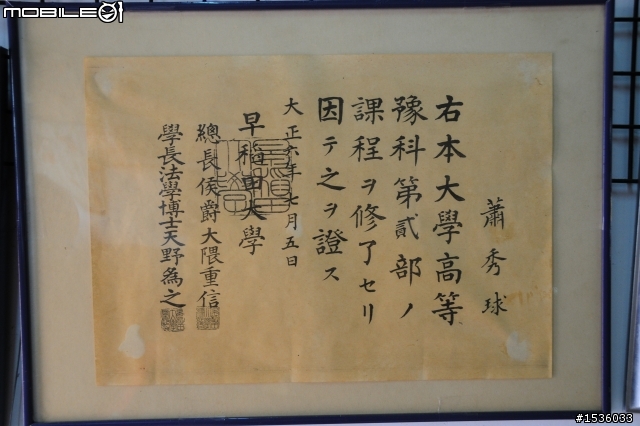 MOBILE01
蕭秀球
右本大學高等
豫科第貳部ノ
課程ヲ修了セリ
因テ之ヲ證ス
大正六年七月五日
早稲田大學
總長侯爵大隈重信
學長法學博士天野為之
#1536033